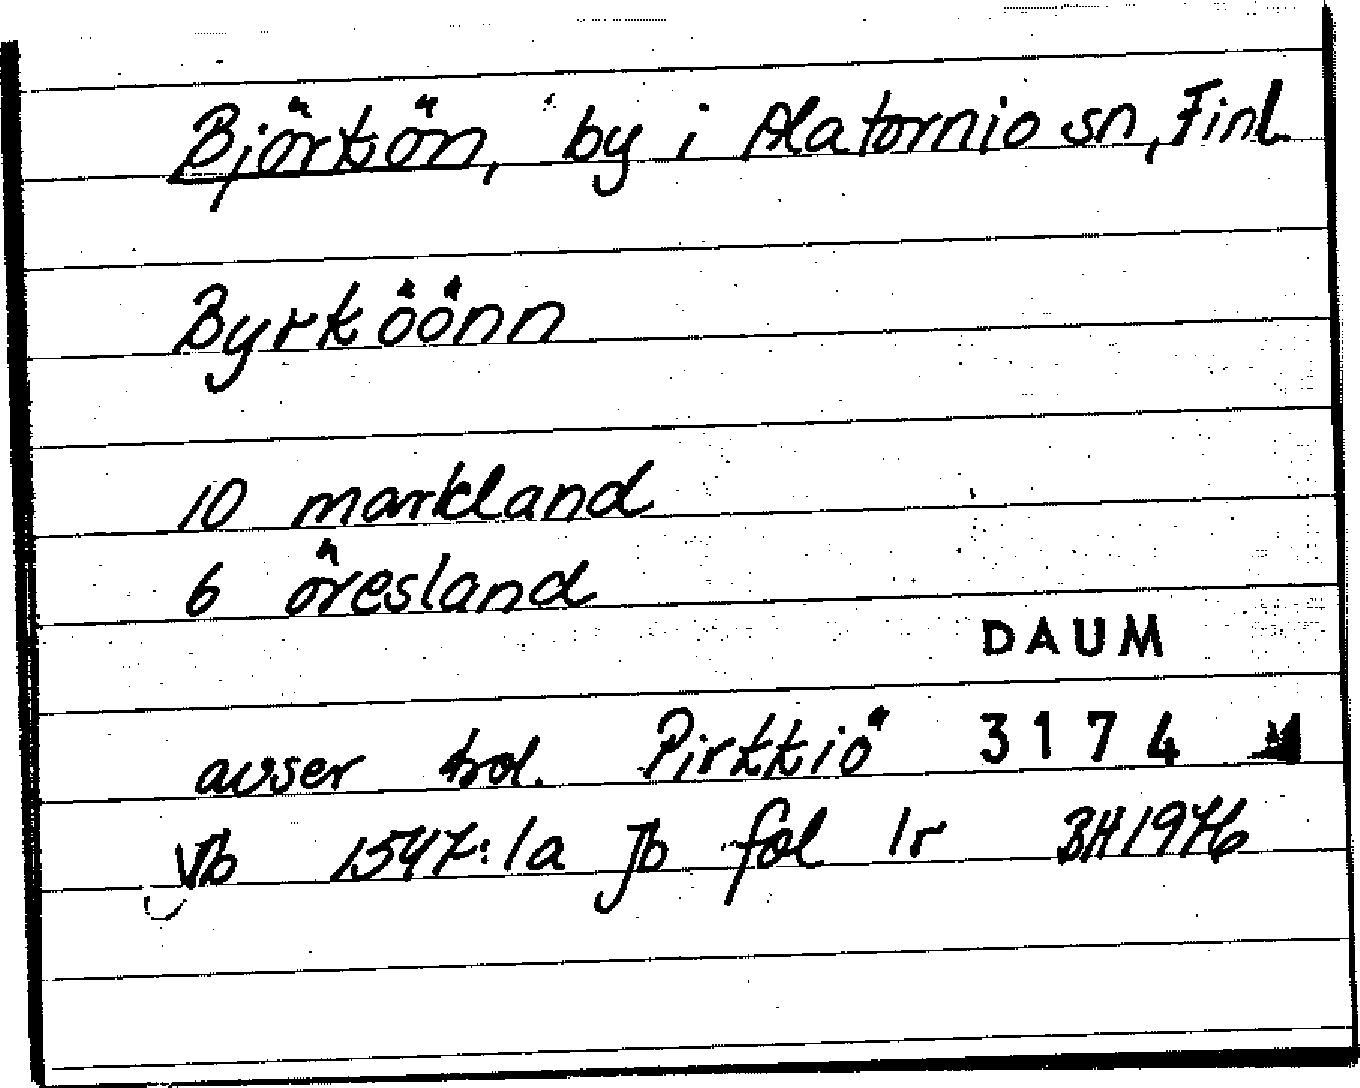 Björkön, by i Alatornio sn, Finl.
Byrköönn
10 markland
6 öresland
DAUM
avser trol. Pirkkiö 3174
Vb 1547:1a Jb fol 1r BH1976